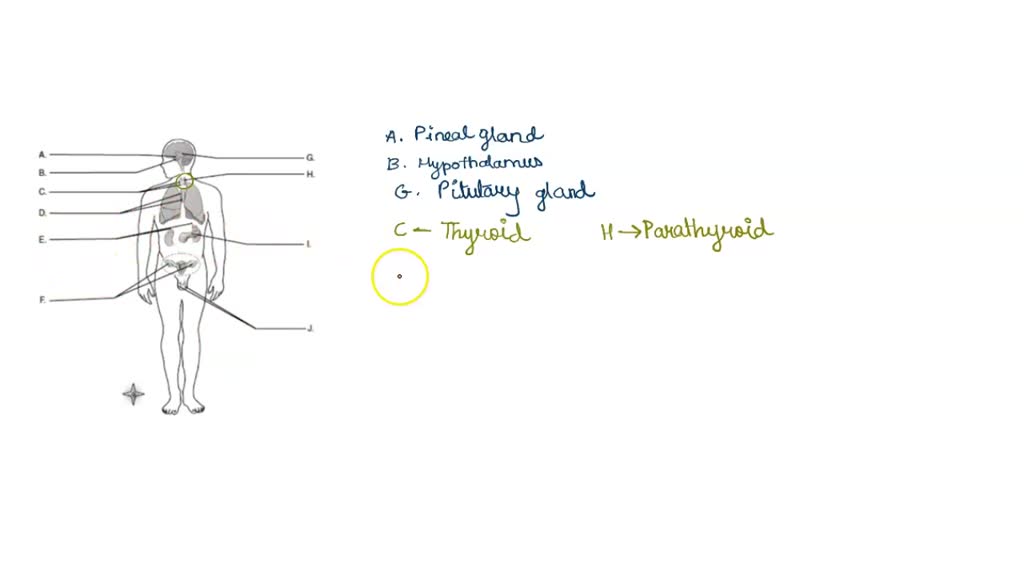 A.
B.
C.
D.
E.
F.
G.
H.
I.
J.
A. Pineal gland
B. Hypothalamus
G. Pitutary gland
C ← Thyroid H → Parathyroid